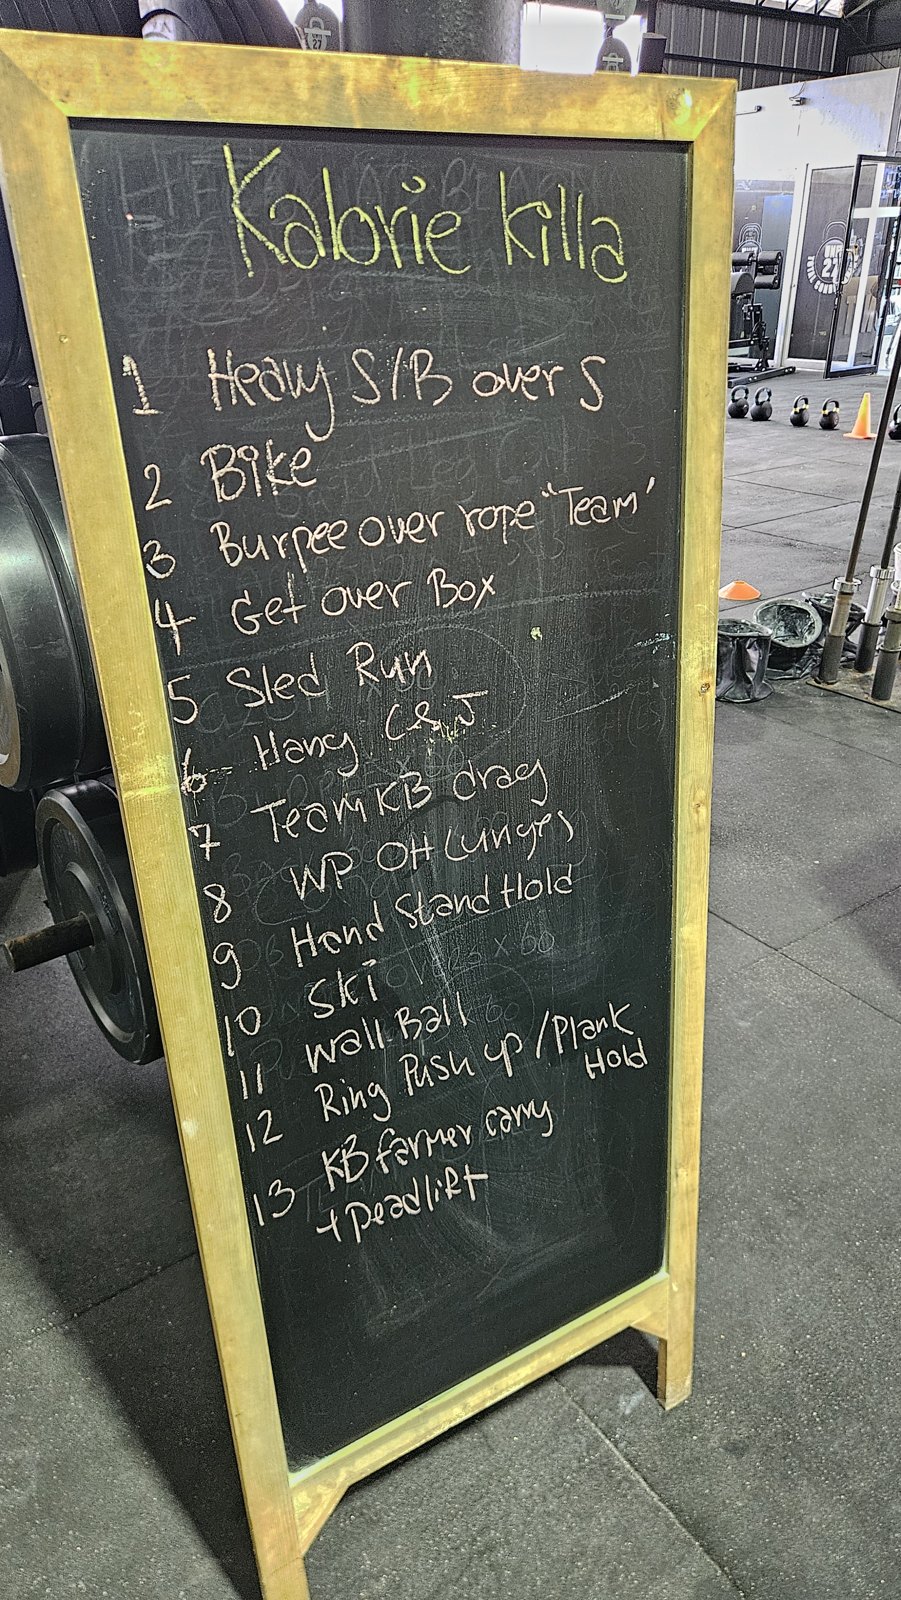 Kalorie killa
1 Heavy S/B over S
2 Bike
3 Burpee over rope "Team'
4 Get over Box
5 Sled Run
6 Hang C & J
7 Team KB drag
8 WP OH Lunges
9 Hand Stand Hold
10 Ski
11 Wall Ball
12 Ring Push up / Plank
Hold
13 KB farmer carry
+ Deadlift
27
27